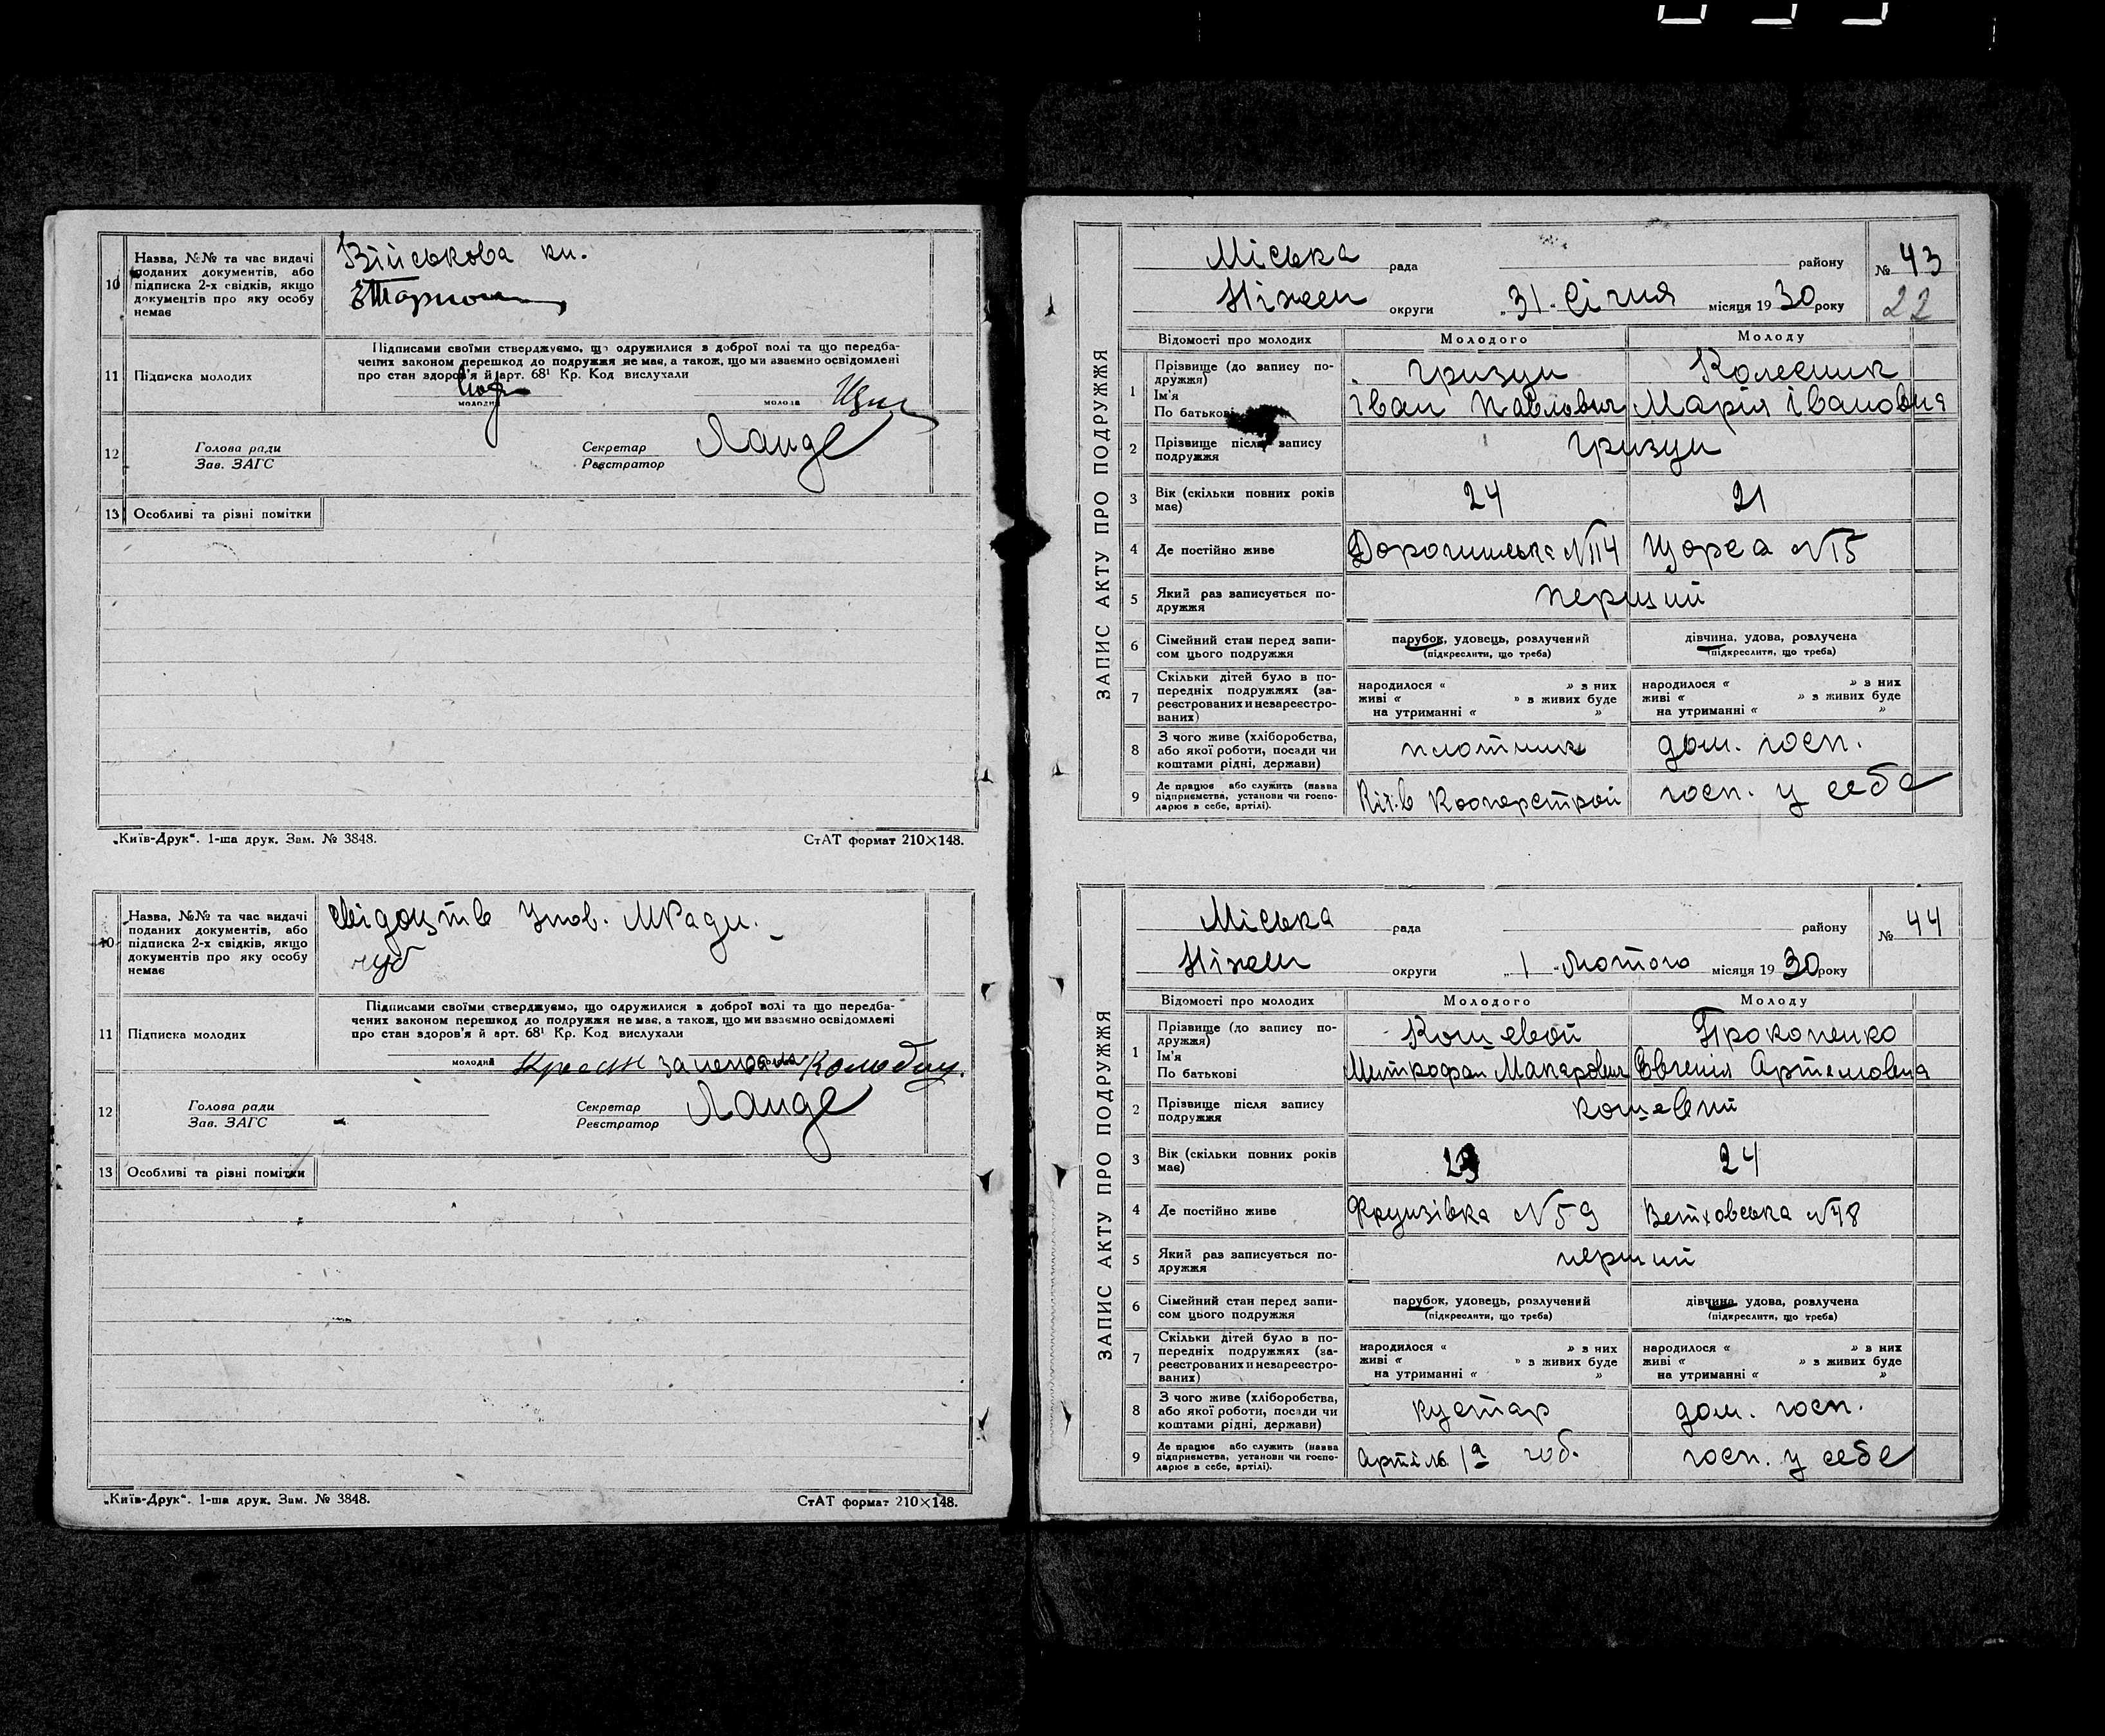 10
Назва, №№ та час видачі
поданих документів, або
підписка 2-х свідків, якщо
документів про яку особу
немає
Військова кн.
11
Підписка молодих
Підписами своїми стверджуємо, що одружилися в доброї волі та що передба-
чених законом перешкод до подружжя не має, а також, що ми взаємно освідомлені
про стан здоров'я й арт. 68¹ Кр. Код вислухали
молодий
молода
12
Голова ради
Зав. ЗАГС
Секретар
Реєстратор
Ланде
13
Особливі та різні помітки
„Київ-Друк“. 1-ша друк. Зам. № 3848.
СтАТ формат 210×148.
10
Назва, №№ та час видачі
поданих документів, або
підписка 2-х свідків, якщо
документів про яку особу
немає
свідоцтв Упов. МРади.
11
Підписка молодих
Підписами своїми стверджуємо, що одружилися в доброї волі та що передба-
чених законом перешкод до подружжя не має, а також, що ми взаємно освідомлені
про стан здоров'я й арт. 68¹ Кр. Код вислухали
молодий
12
Голова ради
Зав. ЗАГС
Секретар
Реєстратор
Ланде
13
Особливі та різні помітки
„Київ-Друк“. 1-ша друк. Зам. № 3848.
СтАТ формат 210×148.
ЗАПИС АКТУ ПРО ПОДРУЖЖЯ
Міська рада району № 43
Ніжен округи „31 Січня місяця 1930 року
22
Відомості про молодих Молодого Молоду
1
Прізвище (до запису по-
дружжя)
Ім'я
По батькові
Гризун Колесник
Іван Павлович Марія Івановна
2
Прізвище після запису
подружжя
Гризун
3
Вік (скільки повних років
має)
24 21
4
Де постійно живе
Дорогинська №114 Щорса №15
5
Який раз записується по-
дружжя
перший
6
Сімейний стан перед запи-
сом цього подружжя
парубок, удовець, розлучений
(підкреслити, що треба)
дівчина, удова, розлучена
(підкреслити, що треба)
7
Скільки дітей було в по-
передніх подружжях (за-
реєстрованих и незареєстро-
ваних)
народилося « » з них
живі « » з живих буде
на утриманні « »
народилося « » з них
живі « » з живих буде
на утриманні « »
8
З чого живе (хліборобства,
або якої роботи, посади чи
коштами рідні, держави)
плотник дом. госп.
9
Де працює або служить (назва
підприємства, установи чи госпо-
дарює в себе, артілі).
Кооперстрой госп. у себе
ЗАПИС АКТУ ПРО ПОДРУЖЖЯ
Міська рада району № 44
Ніжен округи „1 Лютого місяця 1930 року
Відомості про молодих Молодого Молоду
1
Прізвище (до запису по-
дружжя)
Ім'я
По батькові
Кошевой Прокопенко
Митрофан Макарович Євгенія Артемовна
2
Прізвище після запису
подружжя
Кошевий
3
Вік (скільки повних років
має)
24
4
Де постійно живе
Фрунзівка №59 Ветховська №48
5
Який раз записується по-
дружжя
перший
6
Сімейний стан перед запи-
сом цього подружжя
парубок, удовець, розлучений
(підкреслити, що треба)
дівчина, удова, розлучена
(підкреслити, що треба)
7
Скільки дітей було в по-
передніх подружжях (за-
реєстрованих и незареєстро-
ваних)
народилося « » з них
живі « » з живих буде
на утриманні « »
народилося « » з них
живі « » з живих буде
на утриманні « »
8
З чого живе (хліборобства,
або якої роботи, посади чи
коштами рідні, держави)
кустар дом. госп.
9
Де працює або служить (назва
підприємства, установи чи госпо-
дарює в себе, артілі).
артіль госп. у себе